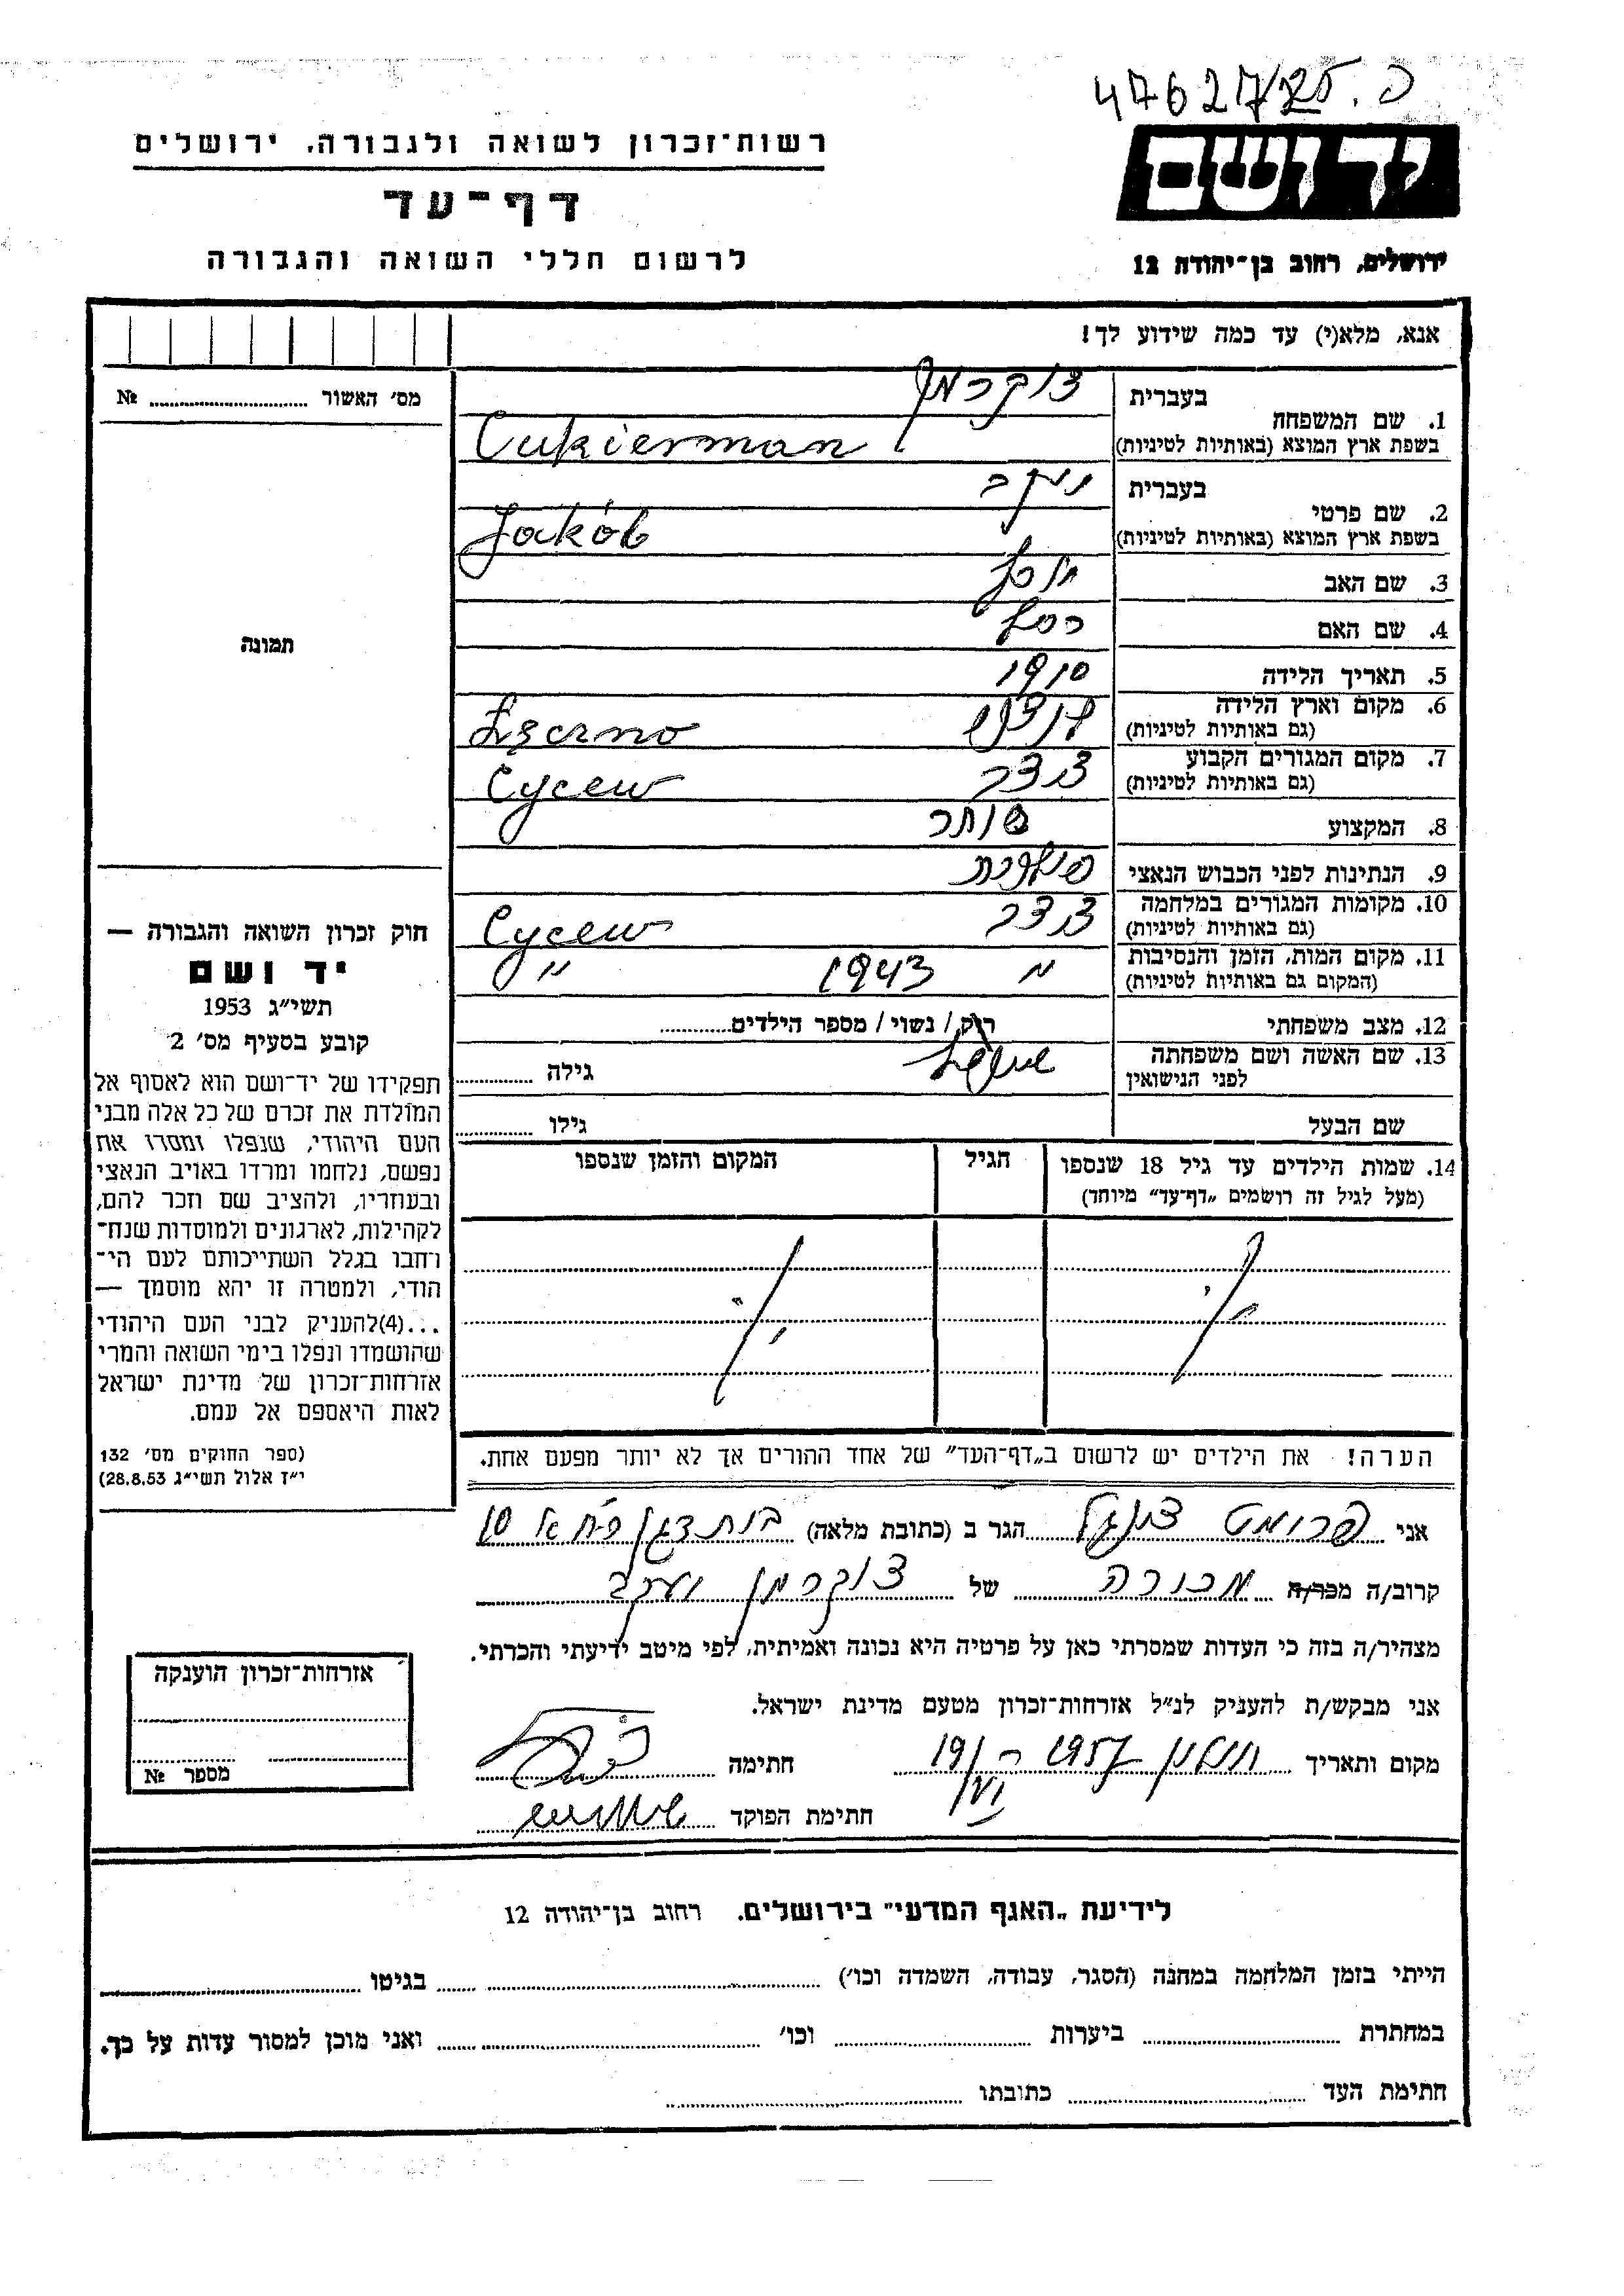 47627/25.כ
יד ושם
ירושלים, רחוב בן־יהודה 12
רשות־זכרון לשואה ולגבורה, ירושלים
דף־עד
לרשום חללי השואה והגבורה
אנא, מלא(י) עד כמה שידוע לך!
מס׳ האשור № ........
תמונה
1. שם המשפחה
בעברית צוקרמן
בשפת ארץ המוצא (באותיות לטיניות) Cukierman
2. שם פרטי
בעברית יעקב
בשפת ארץ המוצא (באותיות לטיניות) Jakób
3. שם האב
4. שם האם
5. תאריך הלידה 1910
6. מקום וארץ הלידה
(גם באותיות לטיניות) Łęczno
7. מקום המגורים הקבוע
(גם באותיות לטיניות) Cycew
8. המקצוע סוחר
9. הנתינות לפני הכבוש הנאצי פולנית
10. מקומות המגורים במלחמה
(גם באותיות לטיניות) Cycew
11. מקום המות, הזמן והנסיבות ״ 1943 ״
(המקום גם באותיות לטיניות)
12. מצב משפחתי רוק / נשוי / מספר הילדים........
13. שם האשה ושם משפחתה
לפני הנישואין
גילה ........
שם הבעל גילו ........
14. שמות הילדים עד גיל 18 שנספו הגיל המקום והזמן שנספו
(מעל לגיל זה רושמים „דף־עד״ מיוחד)
הערה! את הילדים יש לרשום ב„דף־העד״ של אחד ההורים אך לא יותר מפעם אחת.
חוק זכרון השואה והגבורה —
יד ושם
תשי״ג 1953
קובע בסעיף מס׳ 2
תפקידו של יד־ושם הוא לאסוף אל
המולדת את זכרם של כל אלה מבני
העם היהודי, שנפלו ומסרו את
נפשם, נלחמו ומרדו באויב הנאצי
ובעוזריו, ולהציב שם וזכר להם,
לקהילות, לארגונים ולמוסדות שנח־
רחבו בגלל השתייכותם לעם הי־
הודי, ולמטרה זו יהא מוסמך —
...(4)להעניק לבני העם היהודי
שהושמדו ונפלו בימי השואה והמרי
אזרחות־זכרון של מדינת ישראל
לאות היאספם אל עמם.
(ספר החוקים מס׳ 132
י״ז אלול תשי״ג 28.8.53)
אני פרומט הגר ב (כתובת מלאה) בית דגן
קרוב/ה מכר/ה מכורה של צוקרמן יעקב
מצהיר/ה בזה כי העדות שמסרתי כאן על פרטיה היא נכונה ואמיתית, לפי מיטב ידיעתי והכרתי.
אני מבקש/ת להעניק לנ״ל אזרחות־זכרון מטעם מדינת ישראל.
מקום ותאריך 1957 חתימה
חתימת הפוקד
אזרחות־זכרון הוענקה
מספר №
לידיעת „האגף המדעי״ בירושלים. רחוב בן־יהודה 12
הייתי בזמן המלחמה במחנה (הסגר, עבודה, השמדה וכו׳) ........ בגיטו ........
במחתרת ........ ביערות ........ וכו׳ ........ ואני מוכן למסור עדות על כך.
חתימת העד ........ כתובתו ........